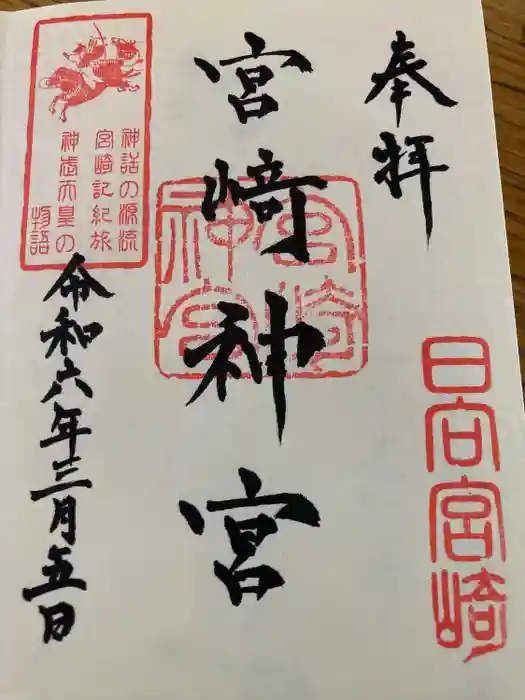 奉拝
日向宮崎
宮﨑神宮
宮崎神宮
神話の源流
宮崎記紀旅
神武天皇の
物語
令和六年三月五日